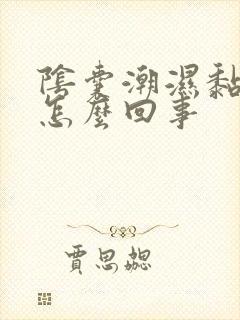 陰囊潮濕黏
怎麼回事
賈思勰